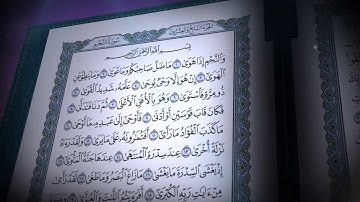 الجزء السابع والعشرون
سورة النجم
بسم الله الرحمن الرحيم
والنجم إذا هوى ١ ما ضل صاحبكم وما غوى ٢ وما ينطق عن
الهوى ٣ إن هو إلا وحي يوحى ٤ علمه شديد القوى ٥
ذو مرة فاستوى ٦ وهو بالأفق الأعلى ٧ ثم دنا فتدلى ٨
فكان قاب قوسين أو أدنى ٩ فأوحى إلى عبده ما أوحى ١٠
ما كذب الفؤاد ما رأى ١١ أفتمارونه على ما يرى ١٢ ولقد رآه
نزلة أخرى ١٣ عند سدرة المنتهى ١٤ عندها جنة المأوى ١٥
إذ يغشى السدرة ما يغشى ١٦ ما زاغ البصر وما طغى ١٧ لقد رأى
من آيات ربه الكبرى ١٨ أفرأيتم اللات والعزى ١٩